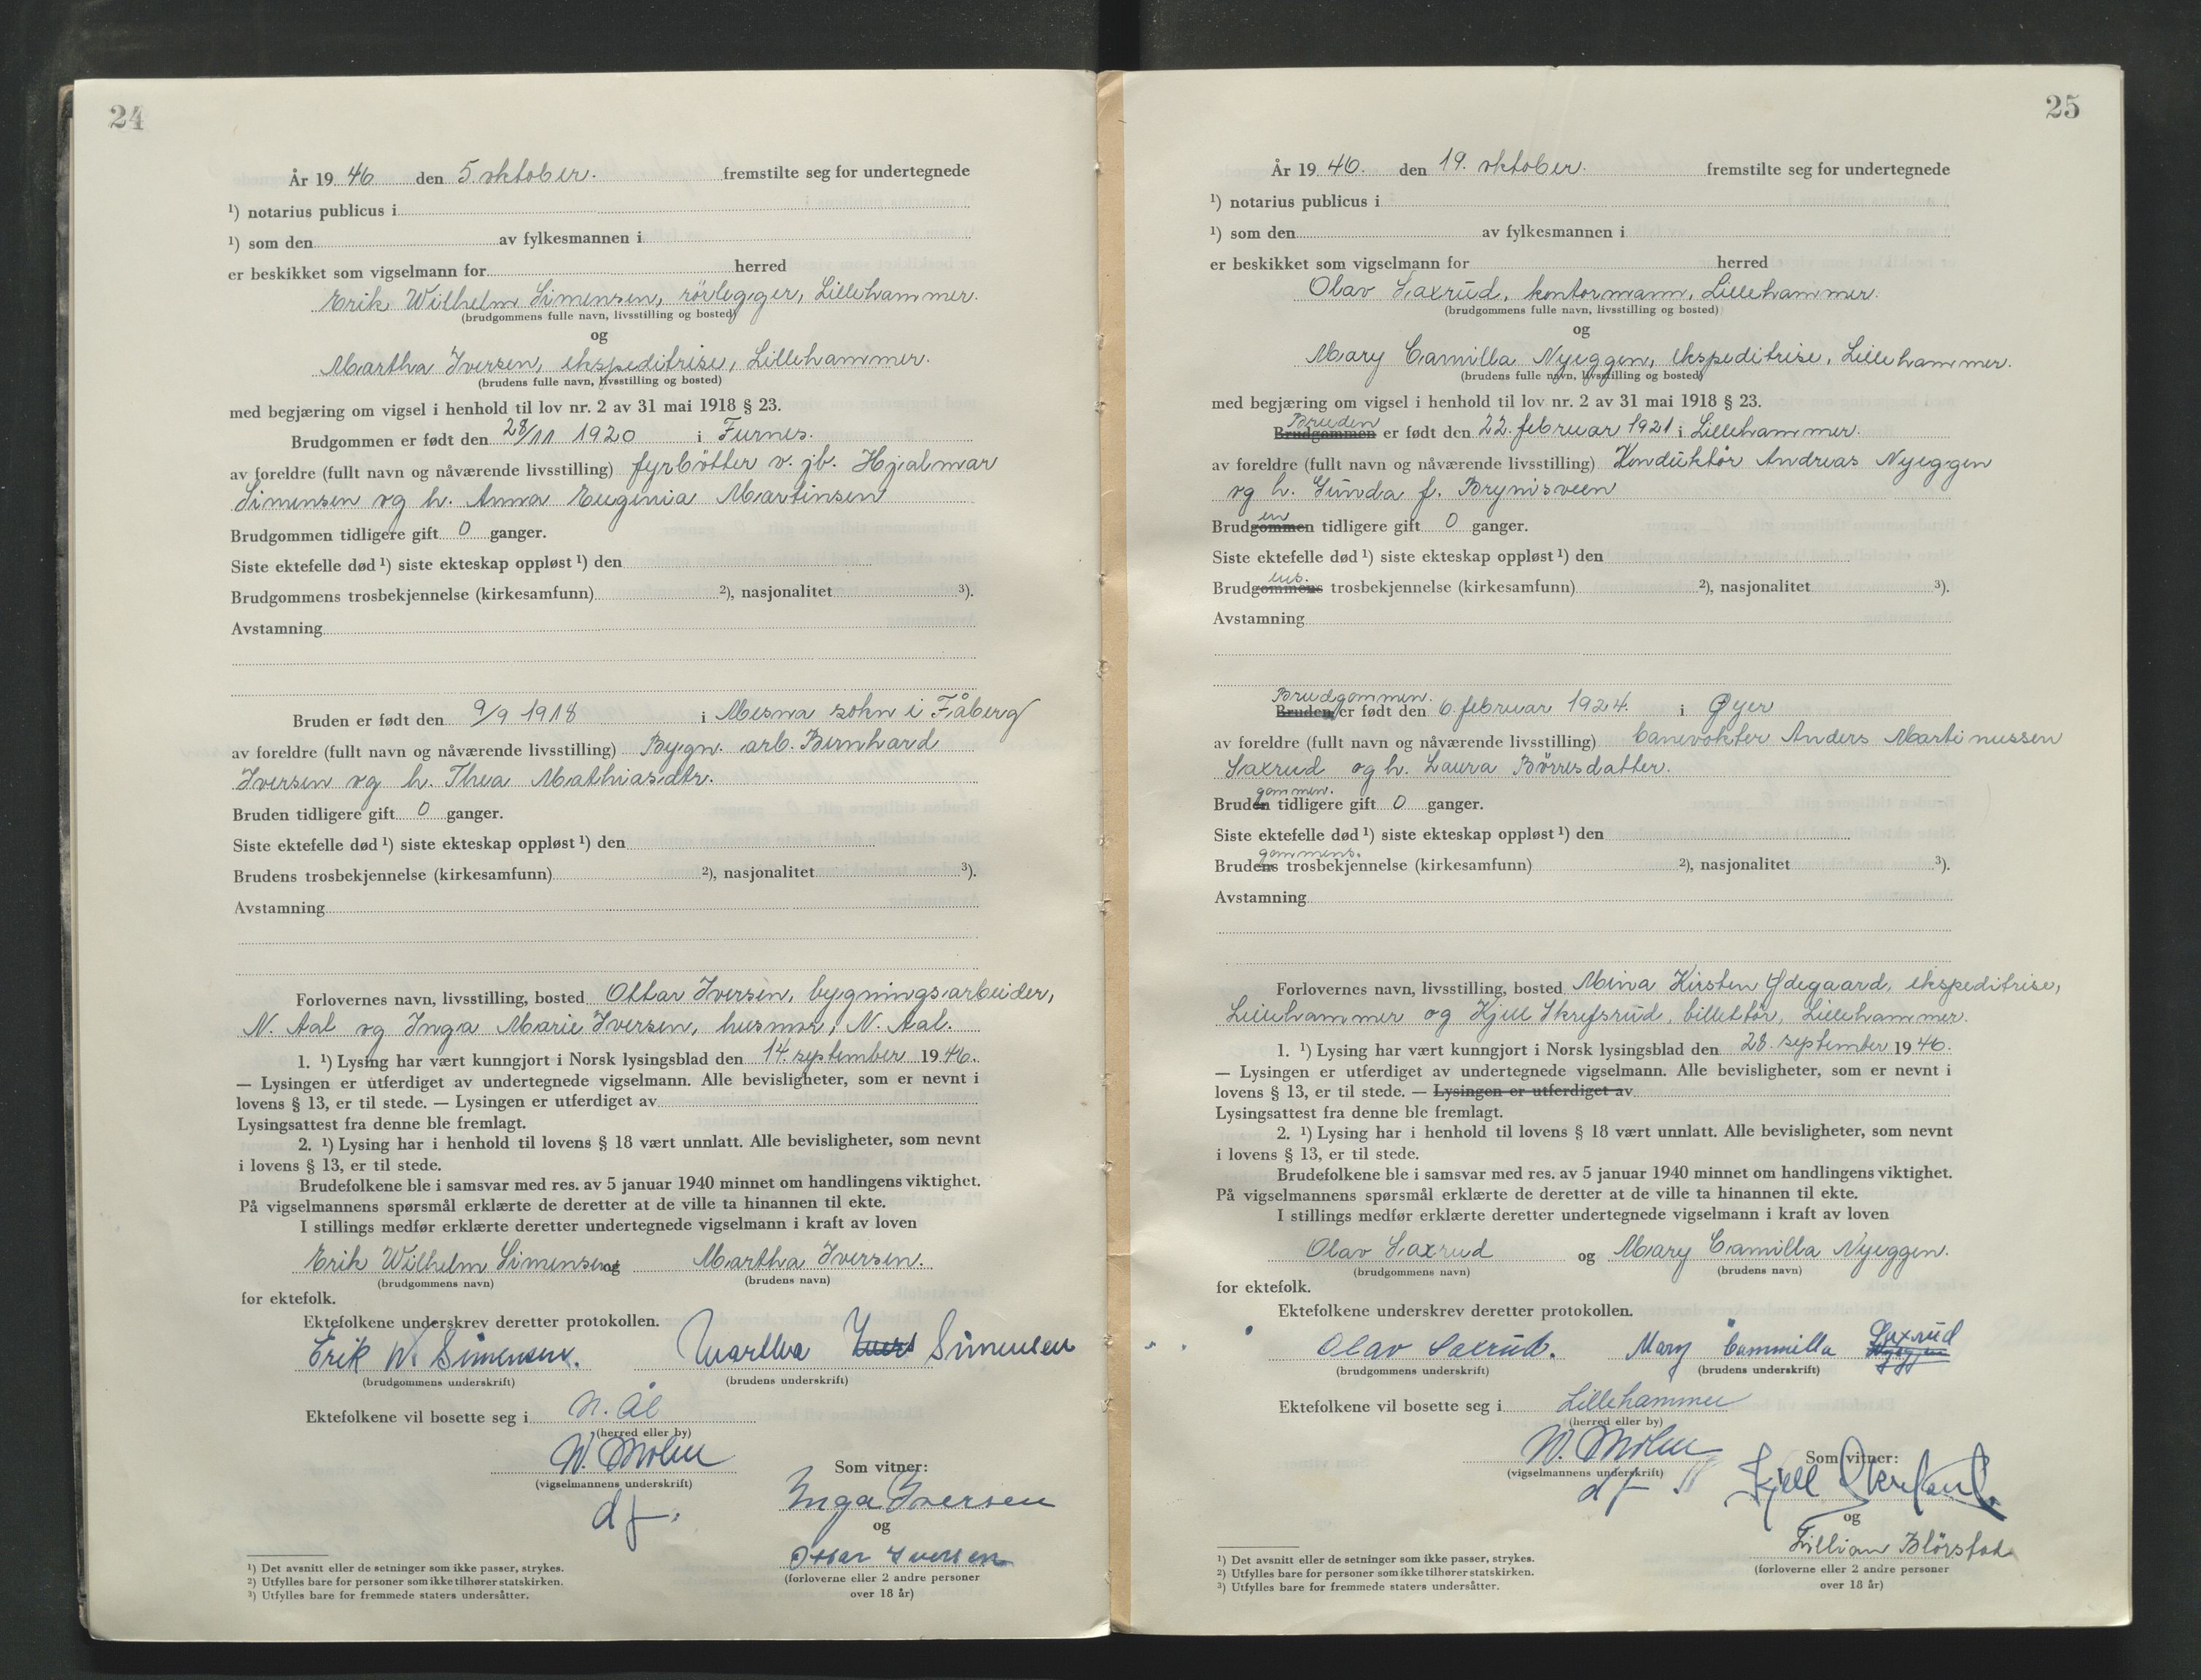 24
År 19 46 den 5. oktober. fremstilte seg for undertegnede
¹) notarius publicus i
¹) som den av fylkesmannen i
er beskikket som vigselmann for herred
Erik Wilhelm Simensen, rörlegger, Lillehammer.
(brudgommens fulle navn, livsstilling og bosted)
og
Martha Iversen, ekspeditrise, Lillehammer.
(brudens fulle navn, livsstilling og bosted)
med begjæring om vigsel i henhold til lov nr. 2 av 31 mai 1918 § 23.
Brudgommen er født den 28/11 1920 i Furnes.
av foreldre (fullt navn og nåværende livsstilling) fyrbötter v. jb. Hjalmar
Simensen og h. Anna Eugenia Martinsen
Brudgommen tidligere gift 0 ganger.
Siste ektefelle død ¹) siste ekteskap oppløst ¹) den
Brudgommens trosbekjennelse (kirkesamfunn) ²), nasjonalitet ³).
Avstamning
Bruden er født den 9/9 1918 i Mesna sokn i Fåberg
av foreldre (fullt navn og nåværende livsstilling) Bygn. arb. Bernhard
Iversen og h. Thea Mathiasdtr.
Bruden tidligere gift 0 ganger.
Siste ektefelle død ¹) siste ekteskap oppløst ¹) den
Brudens trosbekjennelse (kirkesamfunn) ²), nasjonalitet ³).
Avstamning
Forlovernes navn, livsstilling, bosted Ottar Iversen, bygningsarbeider,
N. Aal og Inga Marie Iversen, husmor, N. Aal.
1. ¹) Lysing har vært kunngjort i Norsk lysingsblad den 14. september 1946.
— Lysingen er utferdiget av undertegnede vigselmann. Alle bevisligheter, som er nevnt i
lovens § 13, er til stede. — Lysingen er utferdiget av
Lysingsattest fra denne ble fremlagt.
2. ¹) Lysing har i henhold til lovens § 18 vært unnlatt. Alle bevisligheter, som nevnt
i lovens § 13, er til stede.
Brudefolkene ble i samsvar med res. av 5 januar 1940 minnet om handlingens viktighet.
På vigselmannens spørsmål erklærte de deretter at de ville ta hinannen til ekte.
I stillings medfør erklærte deretter undertegnede vigselmann i kraft av loven
Erik Wilhelm Simensen og Martha Iversen.
(brudgommens navn) (brudens navn)
for ektefolk.
Ektefolkene underskrev deretter protokollen.
Erik W. Simensen. Martha Ivers Simensen
(brudgommens underskrift) (brudens underskrift)
Ektefolkene vil bosette seg i N. Ål
(herred eller by)
W. Molin
(vigselmannens underskrift)
df.
Som vitner:
Inga Iversen
og
Ottar Iversen
(forloverne eller 2 andre personer
over 18 år)
¹) Det avsnitt eller de setninger som ikke passer, strykes.
²) Utfylles bare for personer som ikke tilhører statskirken.
³) Utfylles bare for fremmede staters undersåtter.
25
År 19 46. den 19. oktober. fremstilte seg for undertegnede
¹) notarius publicus i
¹) som den av fylkesmannen i
er beskikket som vigselmann for herred
Olav Saxrud, kontormann, Lillehammer.
(brudgommens fulle navn, livsstilling og bosted)
og
Mary Camilla Nyeggen, ekspeditrise, Lillehammer.
(brudens fulle navn, livsstilling og bosted)
med begjæring om vigsel i henhold til lov nr. 2 av 31 mai 1918 § 23.
Bruden
Brudgommen er født den 22. februar 1921 i Lillehammer.
av foreldre (fullt navn og nåværende livsstilling) Konduktör Andreas Nyeggen
og h. Gunda f. Brynisveen
en
Brudgommen tidligere gift 0 ganger.
Siste ektefelle død ¹) siste ekteskap oppløst ¹) den
ens.
Brudgommens trosbekjennelse (kirkesamfunn) ²), nasjonalitet ³).
Avstamning
Brudgommen.
Bruden er født den 6. februar 1924. i Øyer
av foreldre (fullt navn og nåværende livsstilling) banevokter Anders Martinussen
Saxrud og h. Laura Börresdatter.
gommen.
Bruden tidligere gift 0 ganger.
Siste ektefelle død ¹) siste ekteskap oppløst ¹) den
gommens.
Brudens trosbekjennelse (kirkesamfunn) ²), nasjonalitet ³).
Avstamning
Forlovernes navn, livsstilling, bosted Mina Kirsten Ødegaard, ekspeditrise,
Lillehammer og Kjell Skrefsrud, billettör, Lillehammer.
1. ¹) Lysing har vært kunngjort i Norsk lysingsblad den 28. september 1946.
— Lysingen er utferdiget av undertegnede vigselmann. Alle bevisligheter, som er nevnt i
lovens § 13, er til stede. — Lysingen er utferdiget av
Lysingsattest fra denne ble fremlagt.
2. ¹) Lysing har i henhold til lovens § 18 vært unnlatt. Alle bevisligheter, som nevnt
i lovens § 13, er til stede.
Brudefolkene ble i samsvar med res. av 5 januar 1940 minnet om handlingens viktighet.
På vigselmannens spørsmål erklærte de deretter at de ville ta hinannen til ekte.
I stillings medfør erklærte deretter undertegnede vigselmann i kraft av loven
Olav Saxrud og Mary Camilla Nyeggen.
(brudgommens navn) (brudens navn)
for ektefolk.
Ektefolkene underskrev deretter protokollen.
Olav Saxrud. Mary Cammilla Saxrud
(brudgommens underskrift) (brudens underskrift)
Ektefolkene vil bosette seg i Lillehammer
(herred eller by)
W. Molin
(vigselmannens underskrift)
df
Som vitner:
Kjell Skrefsrud.
og
Lillian Blörstad
(forloverne eller 2 andre personer
over 18 år)
¹) Det avsnitt eller de setninger som ikke passer, strykes.
²) Utfylles bare for personer som ikke tilhører statskirken.
³) Utfylles bare for fremmede staters undersåtter.